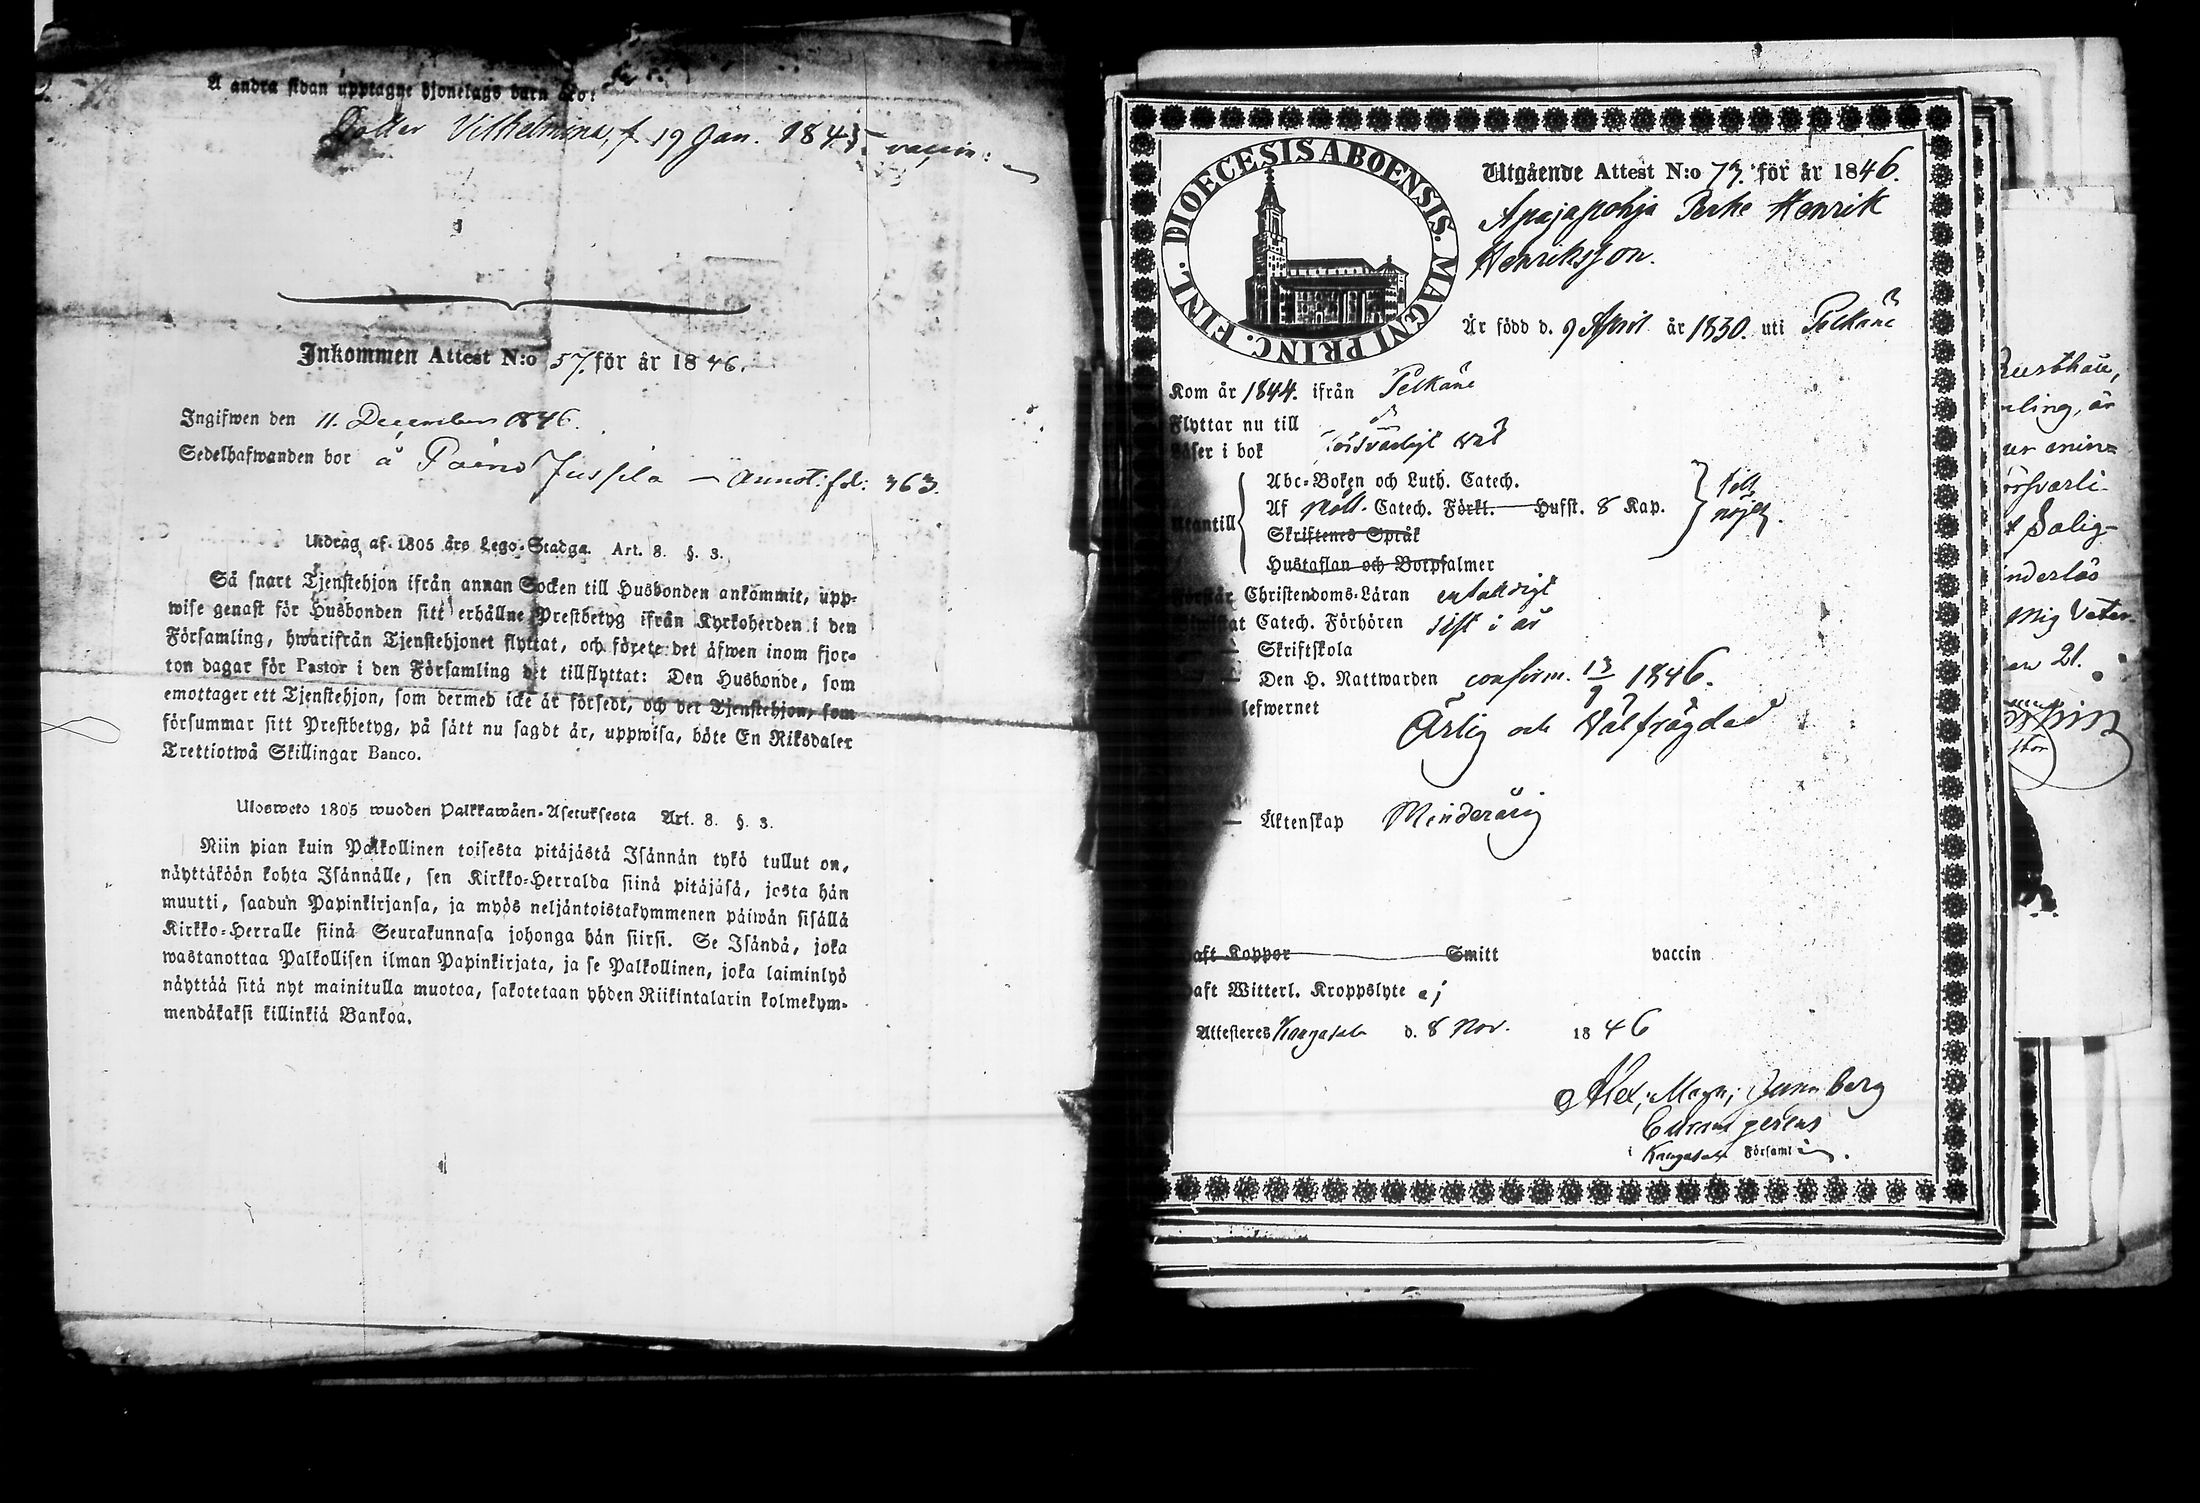 Å andra sidan upptagne Hjonelags barn äro:
Dotter Vilhelmina, f. 19 Jan. 1845 vaccin:
Inkommen Attest N:o 57. för år 1846.
Ingifwen den 11. December 1846.
Sedelhafwanden bor å Jussila — Annot. fol: 363.
Utdrag af 1805 års Lego-Stadga Art. 8. §. 3.
Så snart Tjenstehjon ifrån annan Socken till Husbonden ankommit, upp-
wise genast för Husbonden sitt erhållne Prestbetyg ifrån Kyrkoherden i den
Församling, hwarifrån Tjenstehjonet flyttat, och förete det äfwen inom fjor-
ton dagar för Pastor i den Församling det tillflyttat: Den Husbonde, som
emottager ett Tjenstehjon, som dermed icke är försedt, och det Tjenstehjon, som
försummar sitt Prestbetyg, på sätt nu sagdt är, uppwisa, böte En Riksdaler
Trettiotwå Skillingar Banco.
Ulosweto 1805 wuoden Palkkawäen-Asetuksesta Art. 8. §. 3.
Niin pian kuin Palkollinen toisesta pitäjästä Isännän tykö tullut on,
näyttäköön kohta Isännälle, sen Kirkko-Herralda siinä pitäjäsä, josta hän
muutti, saadun Papinkirjansa, ja myös neljäntoistakymmenen päiwän sisällä
Kirkko-Herralle siinä Seurakunnasa johonga hän siirsi. Se Isändä, joka
wastanottaa Palkollisen ilman Papinkirjata, ja se Palkollinen, joka laiminlyö
näyttää sitä nyt mainitulla muotoa, sakotetaan yhden Riikintalarin kolmekym-
mendäkaksi killinkiä Bankoa.
DIOECESIS ABOENSIS. MAGNI PRINC. FINL.
Utgående Attest N:o 73. för år 1846.
Apajapohja Henrik
Henriksson.
Är född d. 9 April år 1830. uti Pelkäne
Kom år 1844. ifrån Pelkäne
Flyttar nu till
Läser i bok försvarligt
Abc-Boken och Luth. Catech.
Utantill Af Catech. Förkl. Hufst. 8 Kap. till nöjes.
Skriftenes Språk
Hustaflan och Botpsalmer
Förstår Christendoms-Läran enfaldigt
Catech. Förhören sist i år
Skriftskola
Den H. Nattwarden confirm. 13/9 1846.
lefwernet Ärlig och Välfrägdad
Äktenskap Minderårig
haft Koppor Smitt vaccin
haft Witterl. Kroppslyte ej
Attesteres Kangasala d. 8 Nov. 1846
Alex. Magn.
Curam gerens
i Kangasala Församl
ling, är
Salig-
mig Veter-
21.